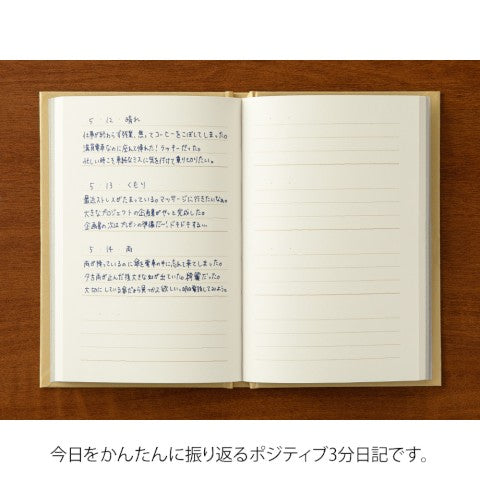 5 12 晴れ
仕事が終わらず残業、焦ってコーヒーをこぼしてしまった。
満員電車なのに座れて帰れた！ラッキーだった。
忙しい時こそ単純なミスに気を付けて乗りきりたい。
5 13 くもり
最近ストレスがたまっている。マッサージに行きたいなぁ。
大きなプロジェクトの企画書がやっと完成した。
企画書の次はプレゼンの準備だ〜！ドキドキする。
5 14 雨
雨が降っているのに傘を電車の中に忘れて来てしまった。
夕方雨が止んだ後大きな虹が出ていた。綺麗だった。
大切にしている傘だから見つかって欲しい。明日電話してみよう。
今日をかんたんに振り返るポジティブ3分日記です。